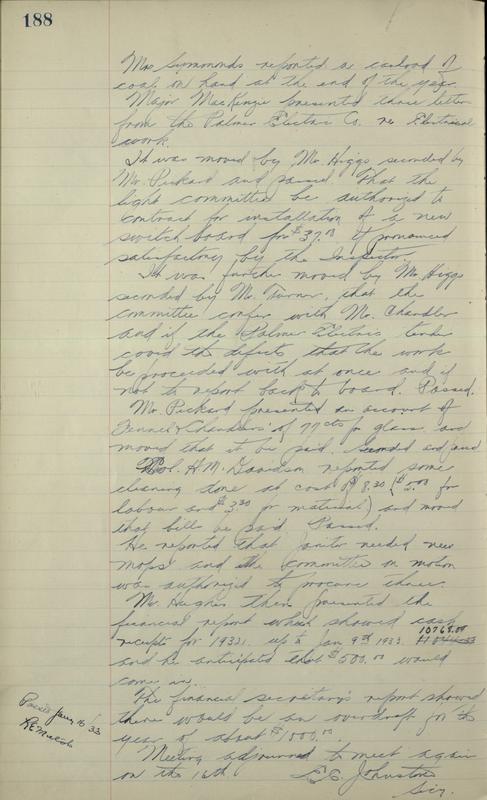 188
Mr. Symmonds reported a carload of
coal on hand at the end of the year.
Major MacKenzie presented three letters
from the Palmer Electric Co. re Electrical
work.
It was moved by Mr. Higgs seconded by
Mr. Pickard and passed. That the
light committee be authorized to
contract for installation of a new
switch board for $37.00 if pronounced
satisfactory by the Inspector.
It was further moved by Mr. Higgs
seconded by Mr. Turner, that the
committee confer with Mr. Chandler
and if the Palmer Electric tender
covered the defects, that the work
be proceeded with at once and if
not to report back to board. Passed.
Mr. Pickard presented an account of
Fennel & Chandlers' of 77 cts for glass and
moved that it be paid. Seconded and passed
H.M. Davidson reported some
cleaning done at cost of $8.30 ($5.00 for
labour and $3.30 for material) and moved
that bills be paid Passed.
He reported that janitor needed new
mops and the committee on motion
was authorized to procure three.
Mr. Hughes then presented the
financial report which showed cash
receipts for 1932. up to Jan 9th 1933. 10768.00
and he anticipated that $500.00 would
come in.
The financial secretary's report showed
there would be an overdraft for the
year of about $1000.00.
Meeting adjourned to meet again
on the 16th. E.C. Johnston
Secy.
Passed Jany 16/33